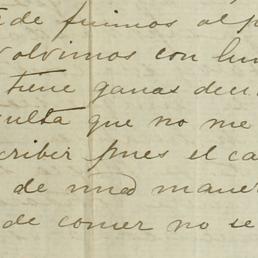 de fuimos al p
volvimos con lu
tiene ganas de u
ulta que no me
cribir pues el ca
de mod maner
de comer no se